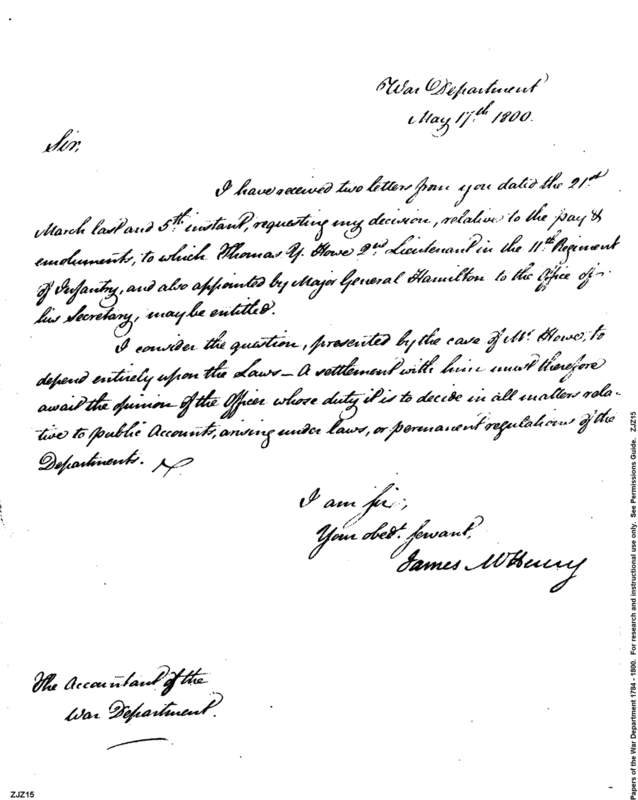 War Department
May 17th 1800.
Sir,
I have received two letters from you dated the 21st
March last and 5th instant, requesting my decision, relative to the pay &
emoluments, to which Thomas Y. Howe 2nd Lieutenant in the 11th Regiment
of Infantry, and also appointed by Major General Hamilton to the Office of
his Secretary, may be entitled.
I consider the question, presented by the case of Mr. Howe, to
depend entirely upon the Laws — A settlement with him must therefore
await the opinion of the Officer whose duty it is to decide in all matters rela-
tive to public Accounts, arising under laws, or permanent regulations of the
Departments.
I am sir,
Your obedt. servant,
James McHenry
The Accountant of the
War Department.
ZJZ15
Papers of the War Department 1784 - 1800. For research and instructional use only. See Permissions Guide. ZJZ15